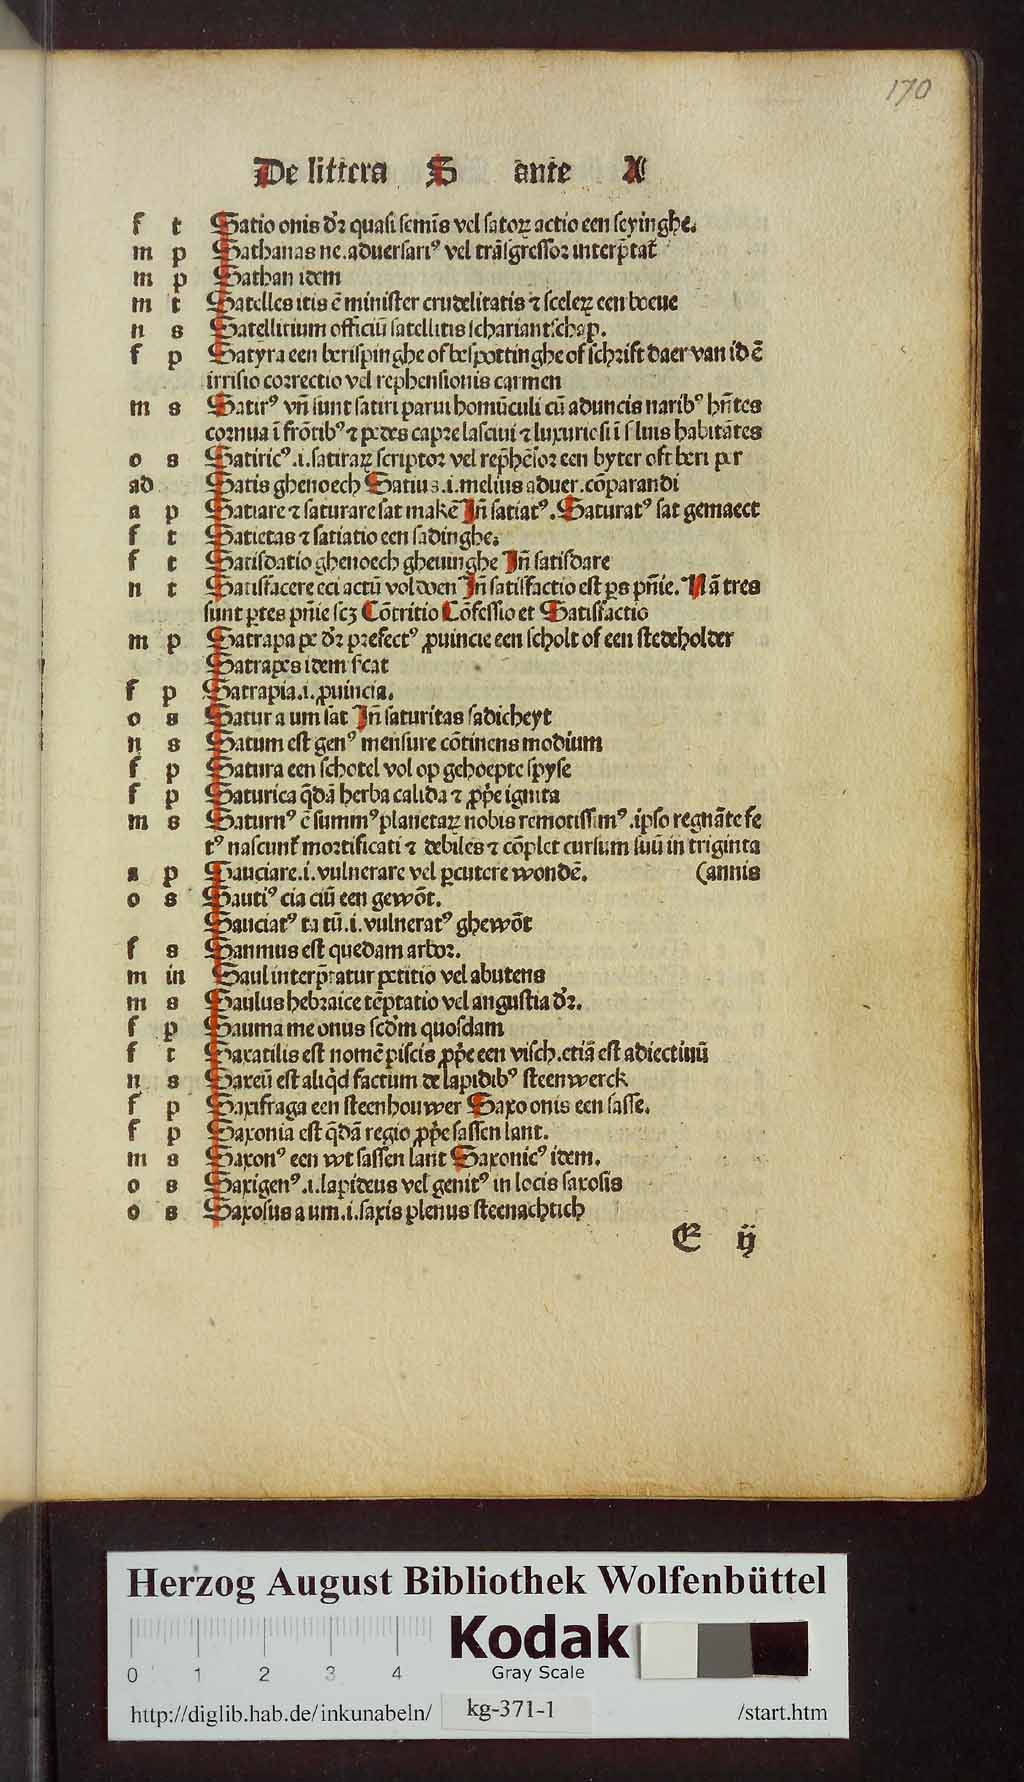 170
De littera S ante A
f t Satio onis dr̄ quasi semīs vel satoꝝ actio een seyinghe.
m p Sathanas ne. aduersariꝰ vel trāsgressor interp̄tat᷑
m p Sathan idem
m t Satelles itis ē minister crudelitatis ⁊ sceleꝝ een boeue
n s Satellitium officiū satellitis schariantschap.
f p Satyra een berispinghe of bespottinghe of schrift daer van id ē
irrisio correctio vel rephensionis carmen
m s Satirꝰ vn̄ sunt satiri parui homūculi cū aduncis naribꝰ hn̄tes
cornua ī frōtibꝰ ⁊ pedes capre lasciui ⁊ luxuriesi ī siluis habitātes
o s Satiricꝰ .i. satiraꝝ scriptor vel rep̄hēsor een byter oft beri per
ad Satis ghenoech Satius .i. melius aduer. cōparandi
a p Satiare ⁊ saturare sat makē In̄ satiatꝰ. Saturatꝰ sat gemaect
f t Satietas ⁊ satiatio een sadinghe.
f t Satisdatio ghenoech gheuinghe In̄ satisdare
n t Satisfacere eci actū voldoen In̄ satisfactio est ꝑs pn̄ie. Nā tres
sunt ꝑtes pn̄ie scꝫ Cōtritio Cōfessio et Satisfactio
m p Satrapa pe dr̄ prefectꝰ ꝓuincie een scholt of een stedeholder
Satrapes idem sicat
f p Satrapia .i. ꝓuincia.
o s Satur a um sat In̄ saturitas sadicheyt
n s Satum est genꝰ mensure cōtinens modium
f p Satura een schotel vol op gehoepte spyse
f p Saturica q̄dā herba calida ⁊ ꝓp̄e ignita
m s Saturnꝰ ē summꝰ planetaꝝ nobis remotissimꝰ .ipso regnāte fe
tꝰ nascunt᷑ mortificati ⁊ debiles ⁊ cōplet cursum suū in triginta
a p Sauciare .i. vulnerare vel ꝑcutere wondē. (annis
o s Sautiꝰ cia ciū een gewōt.
Sauciatꝰ ta tū .i. vulneratꝰ ghewōt
f s Sanmus est quedam arbor.
m in Saul interp̄tatur petitio vel abutens
m s Saulus hebraice tēptatio vel angustia dr̄.
f p Sauma me onus scd̄m quosdam
f t Saxatilis est nomē piscis ꝓp̄e een visch. etiā est adiectiuū
n s Saxeū est aliq̄d factum de lapidibꝰ steenwerck
f p Saxifraga een steenhouwer Saxo onis een sasse.
f p Saxonia est q̄dā regio ꝓp̄e sassen lant.
m s Saxonꝰ een wt sassen lant Saxonicꝰ idem.
o s Saxigenꝰ .i. lapideus vel genitꝰ in locis saxosis
o s Saxosus a um .i. saxis plenus steenachtich
E ij
Herzog August Bibliothek Wolfenbüttel
Kodak
Gray Scale
0 1 2 3 4
http://diglib.hab.de/inkunabeln/ kg-371-1 /start.htm